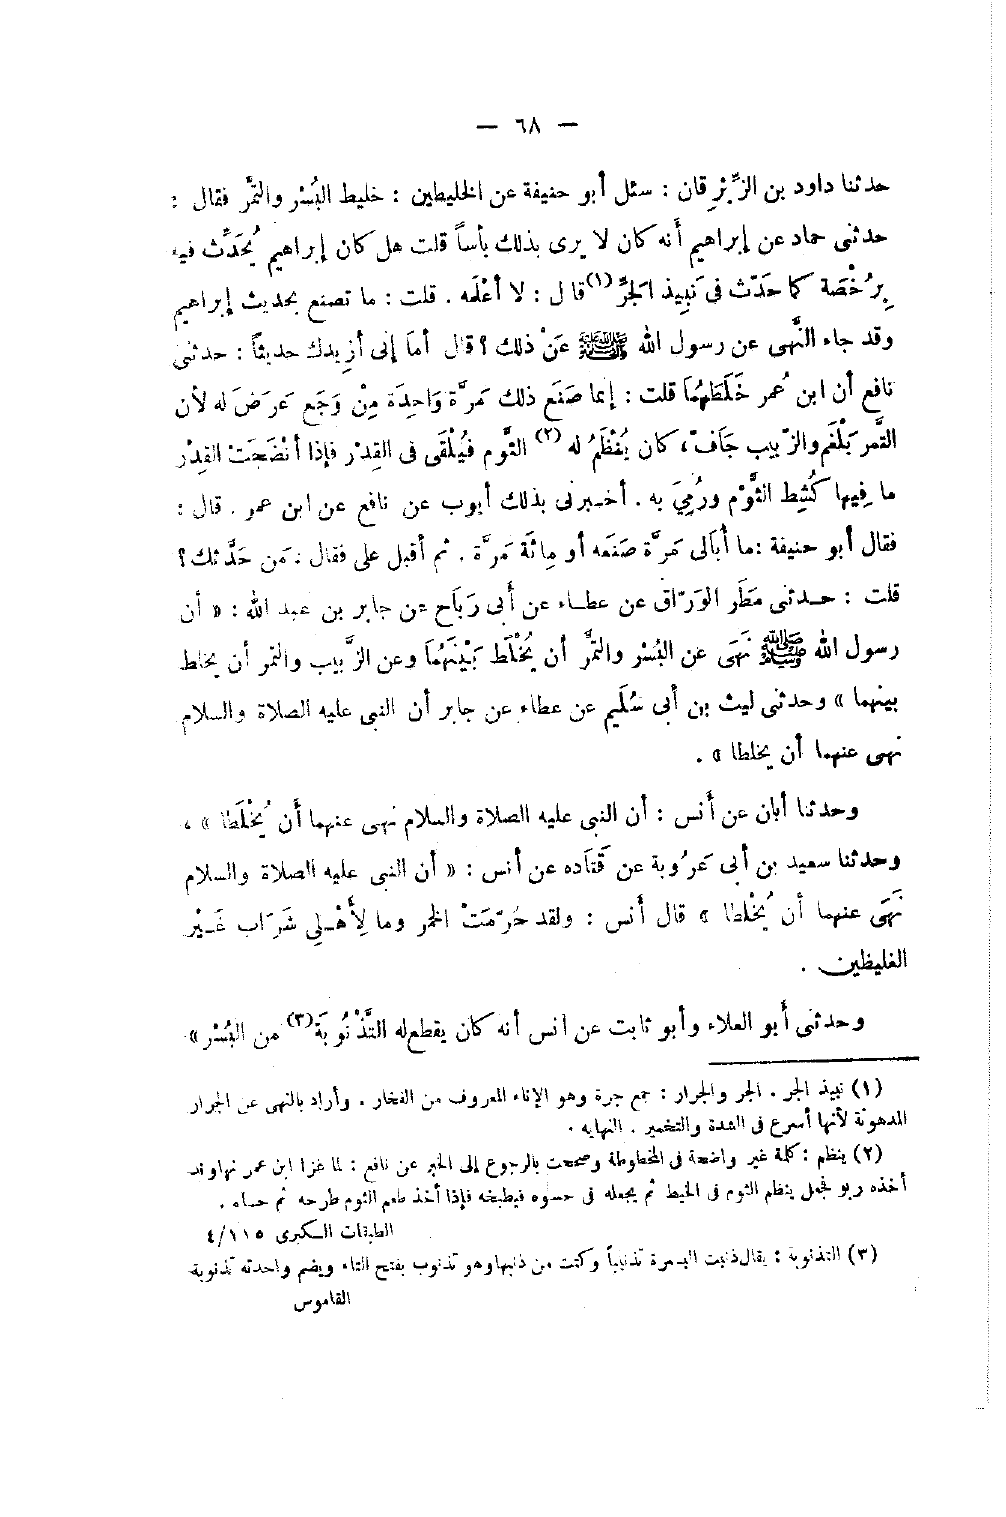 — ٦٨ —
حدثنا داود بن الزِّبْرِقان : سئل أبو حنيفة عن الخليطين : خليط البُسْر والتمَّر فقال :
حدثنى حماد عن إبراهيم أنه كان لا يرى بذلك بأساً قلت هل كان إبراهيم يُحَدِّث فيه
بِرُخْصَة كما حَدّث فى نَبِيذ الجَرّ (١) قال : لا أعْلَمه . قلت : ما تصنع بحديث إبراهيم
وقد جاء النَّهى عن رسول الله ﷺ عَنْ ذلك ؟ قال أمَا إنى أزيدك حديثاً : حدثنى
نافع أن ابن عُمر خَلَطَهُمَا قلت : إنما صَنَع ذلك مَرَّة وَاحِدَة مِنْ وَجَع عَرَضَ له لأن
التَّمر بَلْغَم والزّبيب جَافّ ، كان يُنْظَمُ له (٢) الثُّوم فَيُلْقَى فى القِدْر فإذا أنْضَجَت القِدْر
ما فِيها كُشِط الثُّوْم ورُمِىَ به . أخبرنى بذلك أيوب عن نافع عن ابن عمر . قال :
فقال أبو حنيفة : ما أُبَالى مَرَّة صَنَعه أو مِائَة مَرَّة . ثم أقبل على فقال : مَن حَدَّثك ؟
قلت : حدثنى مَطَر الوَرّاق عن عطاء عن أَبى رَبَاح عن جابر بن عبد الله : « أن
رسول الله ﷺ نَهَى عن البُسْر والتمَّر أن يُخْلَط بَيْنَهُمَا وعن الزَّبيب والتمر أن يخلط
بينهما » وحدثنى ليث بن أبى سُلَيم عن عطاء عن جابر أن النبى عليه الصلاة والسلام
نهى عنهما أن يخلطا » .
وحدثنا أبان عن أَنس : أن النبى عليه الصلاة والسلام نهى عنهما أَن يُخْلَطا » ،
وحدثنا سعيد بن أبى عَرُوبة عن قَتَاده عن أنس : « أن النبى عليه الصلاة والسلام
نَهَى عنهما أن يُخْلطا » قال أَنس : ولقد حُرّمَتْ الخمر وما لِأَهْلِى شَرَاب غَيْر
الغليظين .
وحدثنى أَبو العلاء وأبو ثابت عن انس أنه كان يقطع له التَّذْنُوبَة (٣) من البُسْر »
(١) نبيذ الجر . الجر والجرار : جمع جرة وهو الإناء المعروف من الفخار . وأراد بالنهى عن الجرار
المدهونة لأنها أسرع فى الشدة والتخمير . النهايه .
(٢) ينظم : كلمة غير واضحة فى المخطوطة وصححت بالرجوع إلى الخبر عن نافع : لما غزا ابن عمر نهاوند
أخذه ربو فجعل ينظم الثوم فى الخيط ثم يجعله فى حسوه فيطبخه فإذا أخذ طعم الثوم طرحه ثم حساه .
الطبقات الكبرى ٤/١١٥
(٣) التذنوبة : يقال ذنبت البسرة تذنيباً وكتت من ذنبها وهو تذنوب بفتح التاء ويضم واحدته تذنوبة
القاموس